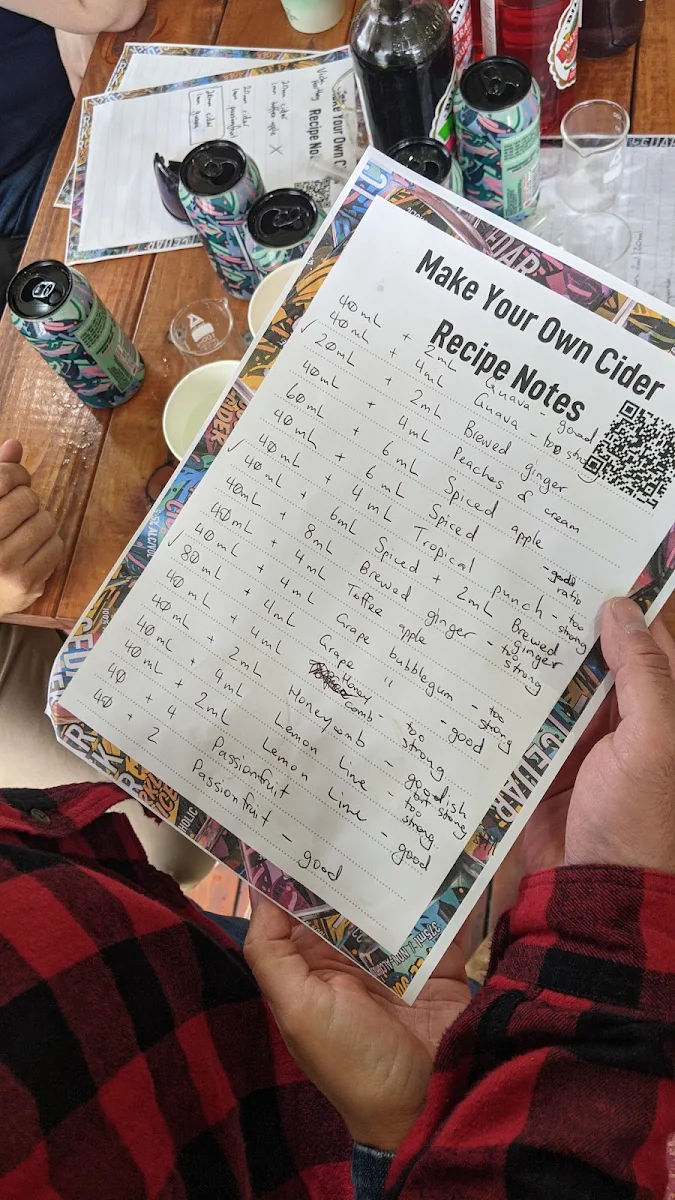 Make Your Own Cider
Recipe Notes
40mL + 2mL Guava - good
40mL + 4mL Guava - too strong
✓ 20mL + 2mL Brewed ginger
40mL + 4mL Peaches & cream
60mL + 6mL Spiced apple
40mL + 6mL Spiced - good ratio
40mL + 4mL Tropical punch - too strong
✓ 40mL + 6mL Spiced + 2mL Brewed ginger
40mL + 8mL Brewed ginger - too strong
40mL + 4mL Toffee apple
✓ 40mL + 4mL Grape bubblegum - too strong
80mL + 4mL Grape " - good
40mL + 4mL Honey comb - too strong
40mL + 2mL Honeycomb - goodish but strong
40mL + 4mL Lemon Lime - too strong
40mL + 2mL Lemon Lime - good
40 + 4 Passionfruit
40 + 2 Passionfruit - good
Recipe No
20mm cider